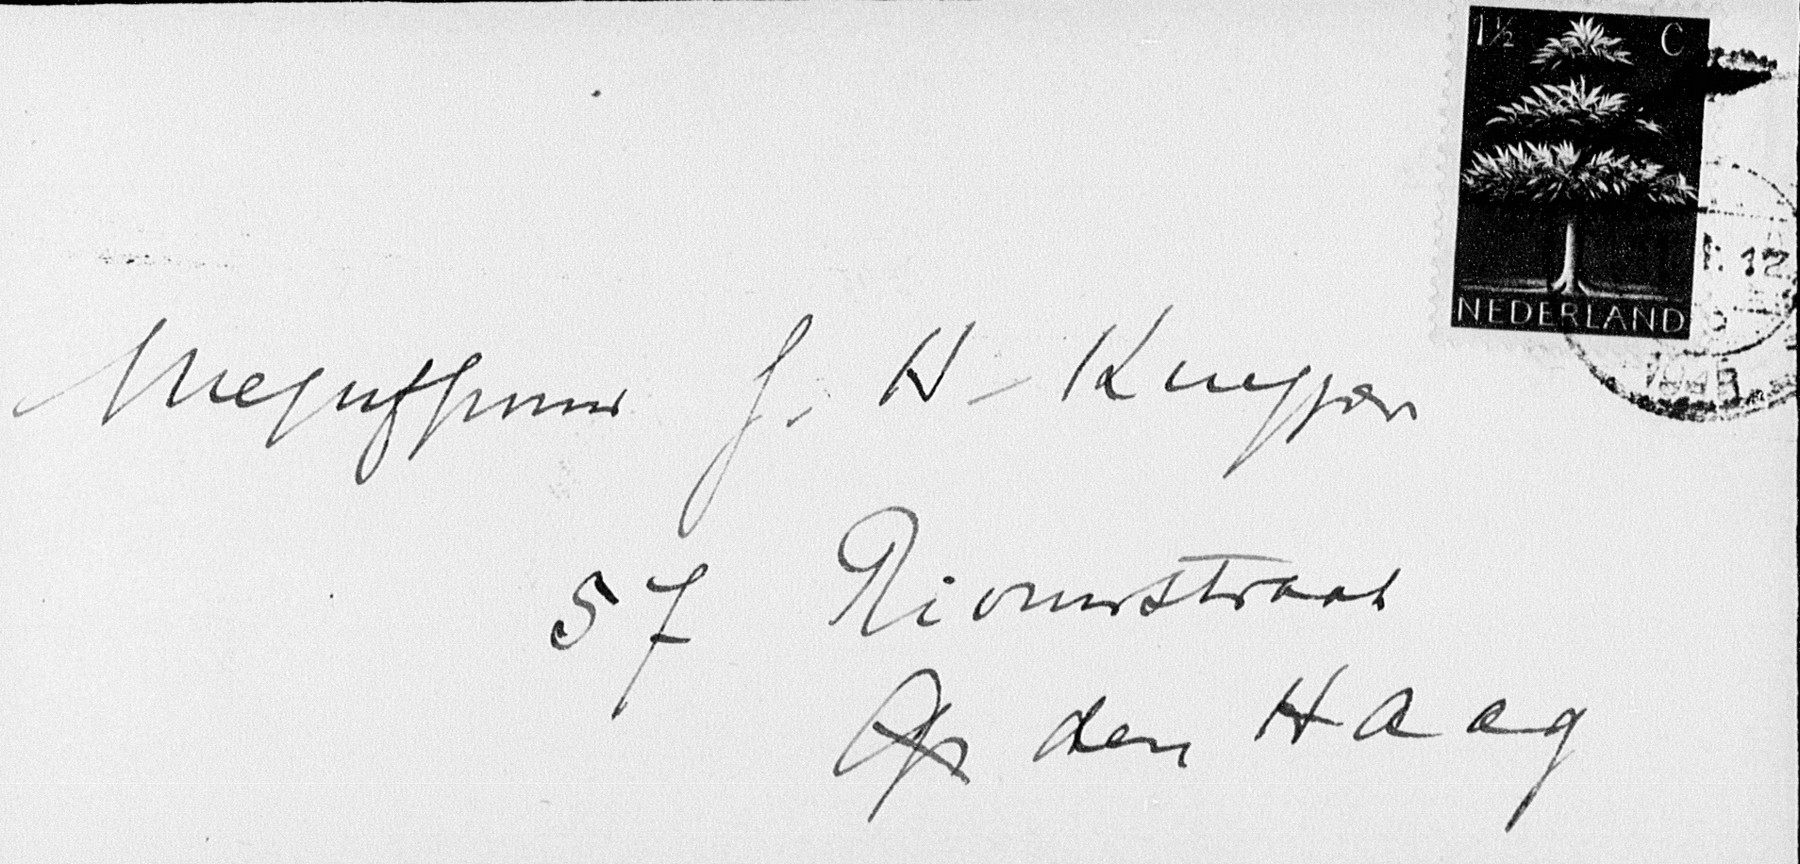 1½ C
NEDERLAND
12
1943
Mejuffrouw J. H. Kuyper
57 Riouwstraat
den Haag